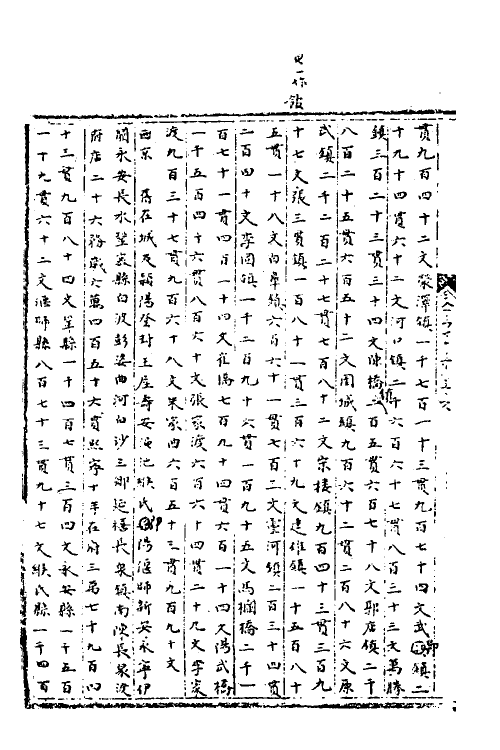 貫九百四十二文滎澤鎮一千七百一十三貫九百七十四文武鎮二
十九十四貫六十二文河口鎮二千六百六十七貫八百三十三文萬勝
鎮三百二十三貫三十四文陳橋鎮二百五貫六百七十八文郭店鎮二千
八百二十五貫六百五十一文圃城鎮九百六十二貫二百八十六文原
武鎮二千二百二十七貫七百八十二文宗樓鎮九百四十三貫三百九
十七文張三貫鎮一百八十一貫三百六十九文建雄鎮一千五百八十
五貫一十八文白皐鎮六百六十一貫七百二文靈河鎮二百三十四貫
二百四十文李固鎮一千二百九十六貫一百九十五文馬欄橋二千一
百七十一貫四百一十四文崔橋七百九十四貫六百一十四文陽武橋
一千五百四十六貫八百六十文張家渡六百六十四貫二十九文李家
渡九百三十七貫九百六十八文朱家曲六百五十三貫九百九十文
西京 舊在城及潁陽登封王屋壽安澠池緱氏陽偃師新安永寧伊
闕永安長水鞏密縣白波彭婆曲河白沙三鄉延禧長泉鎮南陝長泉汝
府店二十六務歲六萬四百五十六貫熙寧十年在府三萬七千九百四
十三貫九百八十四文鞏縣一千四百七貫三百四文永安縣一千五百
一十九貫六十二文偃師縣八百七十三貫九十七文緱氏縣一千四百